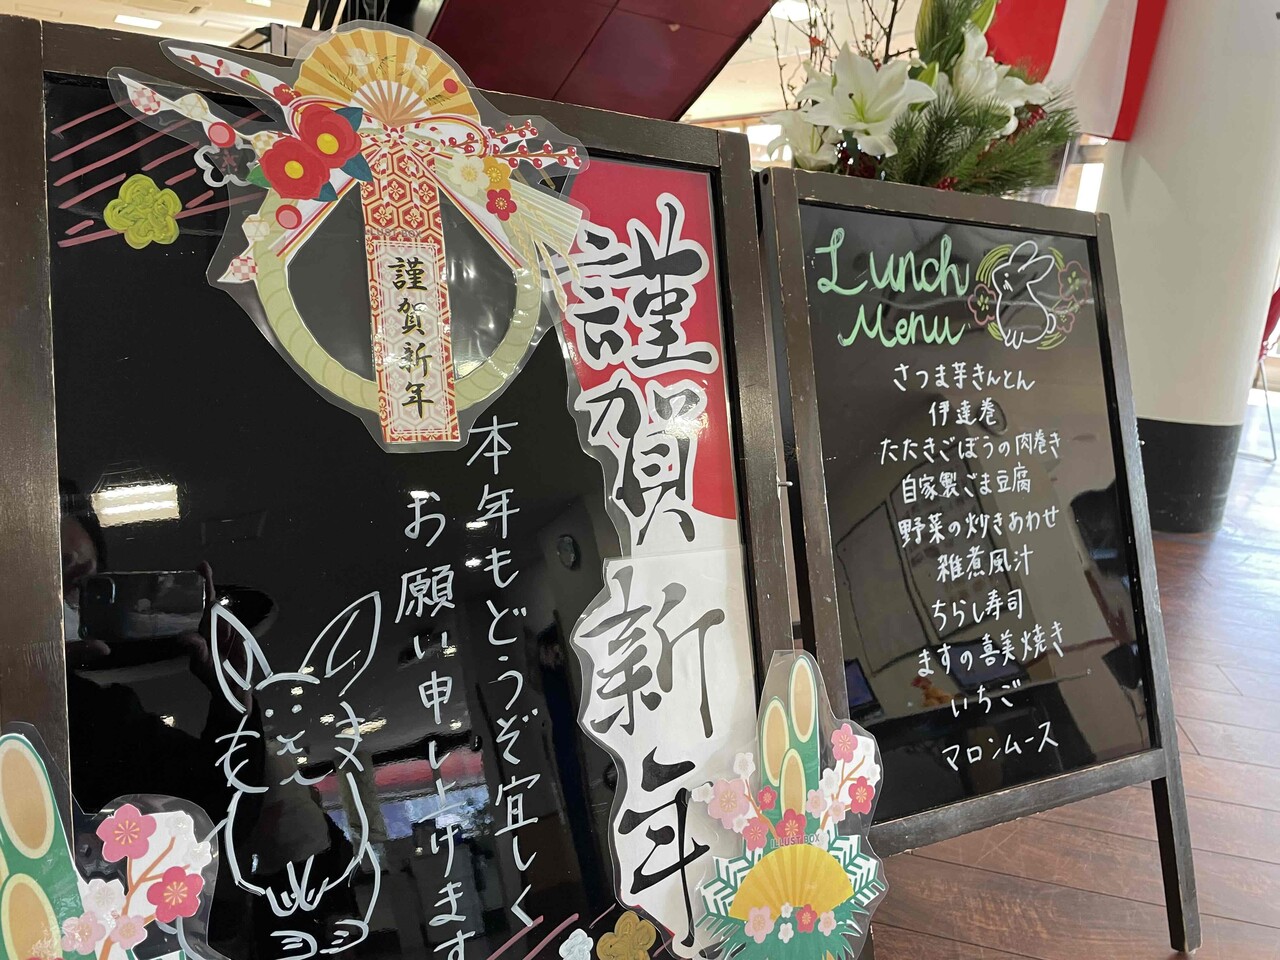 謹賀新年
謹賀新年
本年もどうぞ宜しく
お願い申し上げます
ILLUST BOX
Lunch
Menu
さつま芋きんとん
伊達巻
たたきごぼうの肉巻き
自家製ごま豆腐
野菜の炒きあわせ
雑煮風汁
ちらし寿司
ますの喜美焼き
いちご
マロンムース